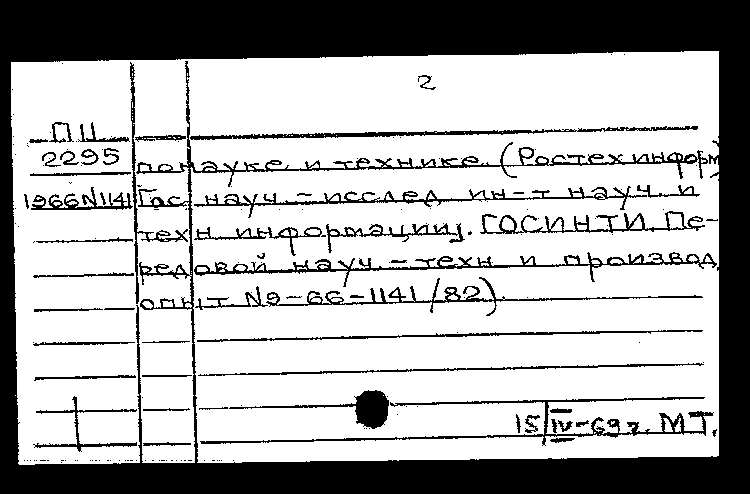 2
ПЦ
2295 по науке и технике. (Ростехинформ
1966N1141 Гос. науч.-исслед. ин-т науч. и
техн информации. ГОСИНТИ. Пе-
редовой науч.-техн и производ.
опыт N9-66-1141/82)
15/IV-69г. МТ.